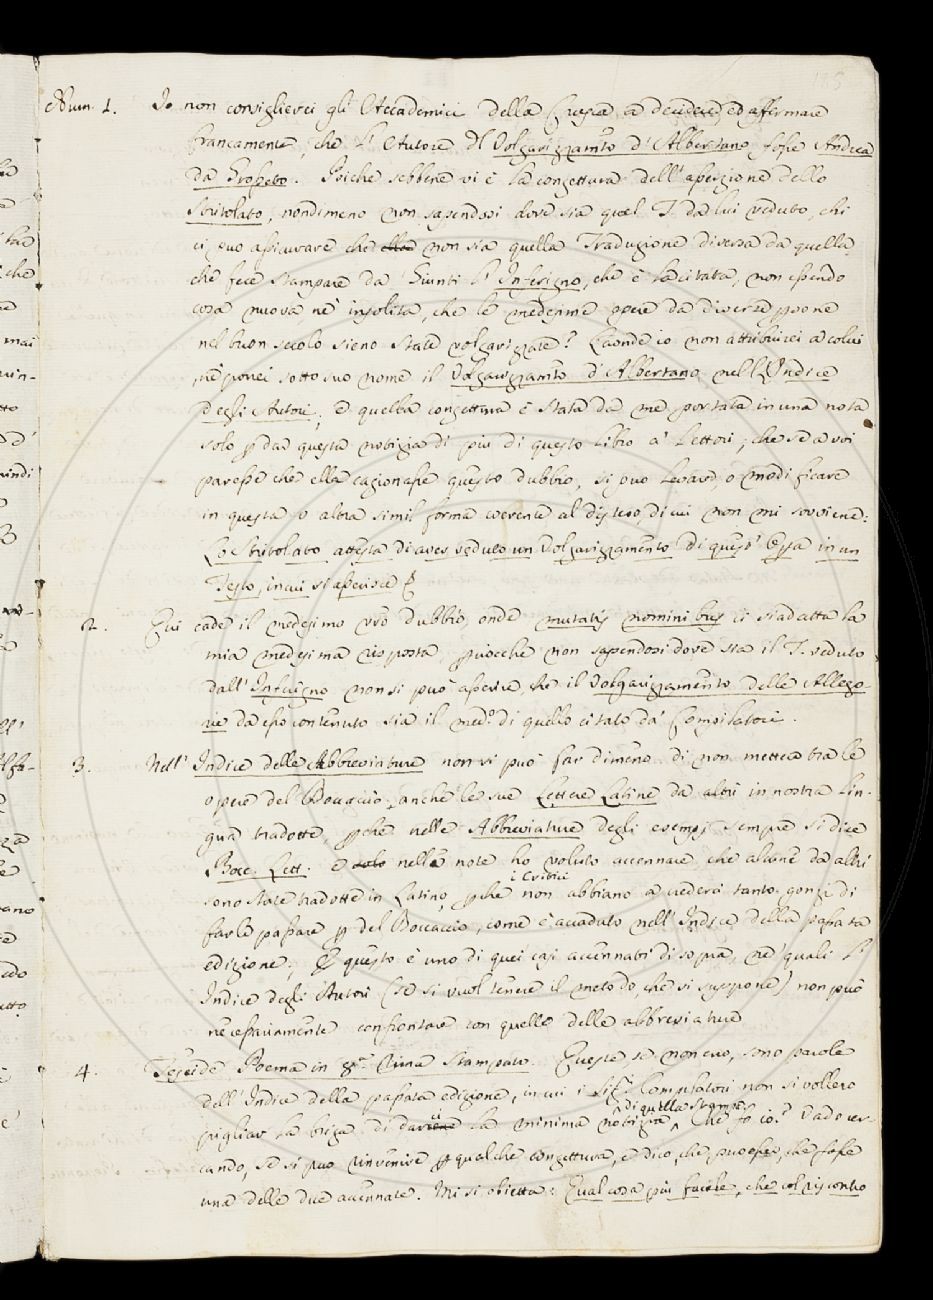 115
Num. 1. Io non consiglierei gli Accademici della Crusca a decidere, ed affermare
francamente, che l'Autore del Volgarizzam.to d'Albertano fosse Andrea
da Grosseto. Poichè sebbene vi è la conzettura dell'asserzione dello
Stritolato, nondimeno non sapendosi dove sia quel T. da lui veduto, chi
ci può assicurare che ella non sia quella Traduzione diversa da quella,
che fece stampare da' Giunti l'Inferigno, che è la citata, non essendo
cosa nuova, nè insolita, che le medesime opere da diverse p̱sone
nel buon secolo sieno state volgarizzate? Laonde io non attribuirei a colui
, nè porrei sotto suo nome il Volgarizzam.to d'Albertano nell'Indice
degli Autori; e questa conzettura è stata da me portata in una nota
solo p̱ dar questa notizia di più di questo Libro a' Lettori; che se a voi
paresse che ella cagionasse questo dubbio, si può levare, o modificare
in questa o altra simil forma coerente al disteso, di cui non mi sovviene:
Lo Stritolato attesta di aver veduto un Volgarizzamento di quest'Op̱a in un
Testo, in cui si asserisce &
2. Qui cade il medesimo v̄ro dubbio, onde mutatis nominibus ci si adatta la
mia medesima risposta, p̱ciocchè non sapendosi dove sia il T. veduto
dall'Inferigno non si può asserire, che il Volgarizzamento delle Allego-
rie da esso contenuto sia il med.o di quello citato da' Compilatori.
3. Nell'Indice delle Abbreviature non si può far dimeno di non mettere tra le
opere del Boccaccio, anche le sue Lettere Latine da altri in nostra Lin-
gua tradotte, p̱chè nelle Abbreviature degli esempj sempre si dice
Bocc. Lett. e solo nelle note ho voluto accennare, che alcune da altri
sono state tradotte in Latino, p̱chè i Critici non abbiano a vederci tanto gonzi di
farle passare p̱ del Boccaccio, come è accaduto nell'Indice della passata
edizione; E questo è uno di quei casi accennati di sopra, ne' quali l'
Indice degli Autori (se si vuol tenere il metodo, che si suppone) non può
necessariamente confrontare con quello delle abbreviature
4. Teseide Poema in 8.va Rima Stampato. Queste, se non erro, sono parole
dell'Indice della passata edizione, in cui i Sig.ri Compilatori non si vollero
pigliar la briga di darci la minima notizia di quella stampa. Che fo io? Vado cer-
cando, se si può rinvenire p̱ qualche conzettura, e dico, che può esser, che fosse
una delle due accennate. Mi si obietta: Qual cosa più facile, che col riscontro